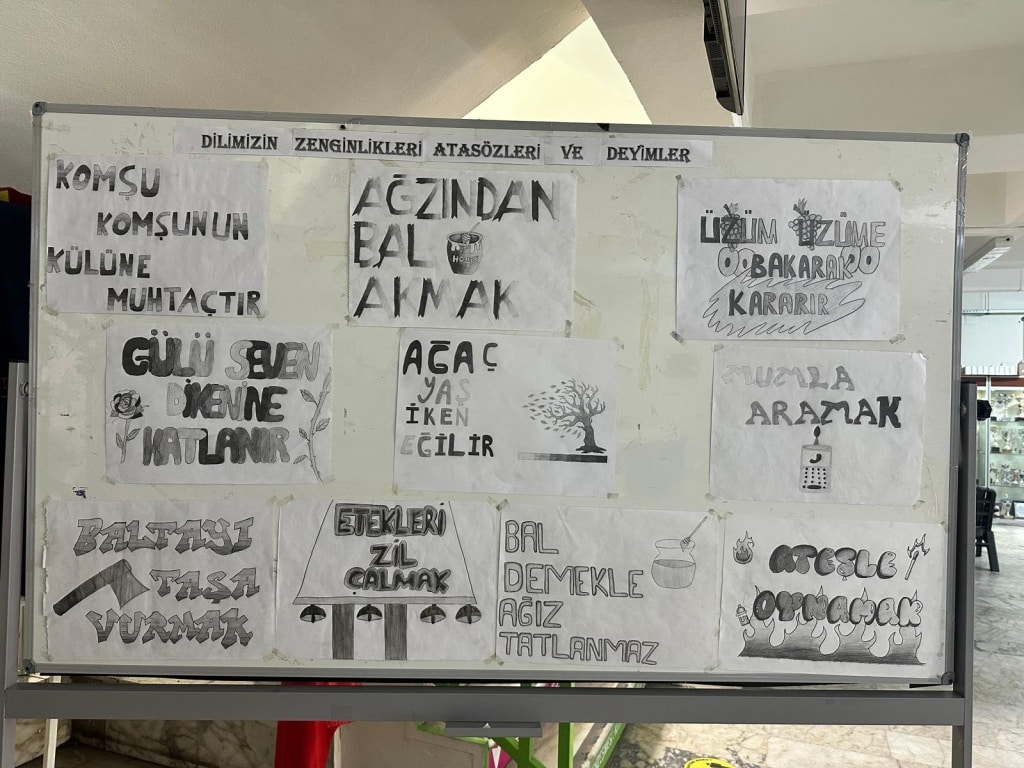 DİLİMİZİN ZENGİNLİKLERİ ATASÖZLERİ VE DEYİMLER
KOMŞU
KOMŞUNUN
KÜLÜNE
MUHTAÇTIR
AĞZINDAN
BAL
AKMAK
ÜZÜM ÜZÜME
BAKARAK
KARARIR
GÜLÜ SEVEN
DİKENİNE
KATLANIR
AĞAÇ
YAŞ
İKEN
EĞİLİR
MUMLA
ARAMAK
BALTAYI
TAŞA
VURMAK
ETEKLERİ
ZİL
ÇALMAK
BAL
DEMEKLE
AĞIZ
TATLANMAZ
ATEŞLE
OYNAMAK